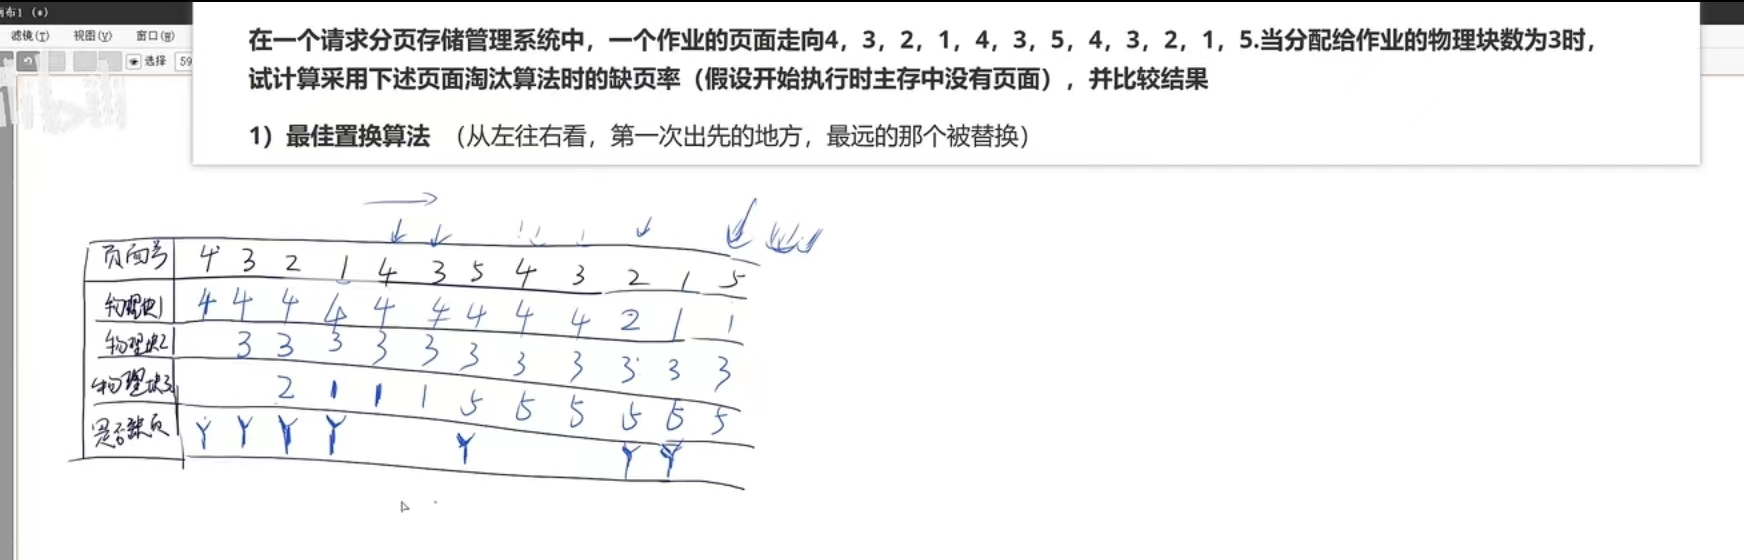 画布1 (*)
滤镜(T) 视图(V) 窗口(W)
选择 59
在一个请求分页存储管理系统中，一个作业的页面走向4，3，2，1，4，3，5，4，3，2，1，5.当分配给作业的物理块数为3时，
试计算采用下述页面淘汰算法时的缺页率（假设开始执行时主存中没有页面），并比较结果
1）最佳置换算法 （从左往右看，第一次出先的地方，最远的那个被替换）
页面号 4 3 2 1 4 3 5 4 3 2 1 5
物理块1 4 4 4 4 4 4 4 4 4 2 1 1
物理块2 3 3 3 3 3 3 3 3 3 3 3
物理块3 2 1 1 1 5 5 5 5 5 5
是否缺页 Y Y Y Y Y Y Y